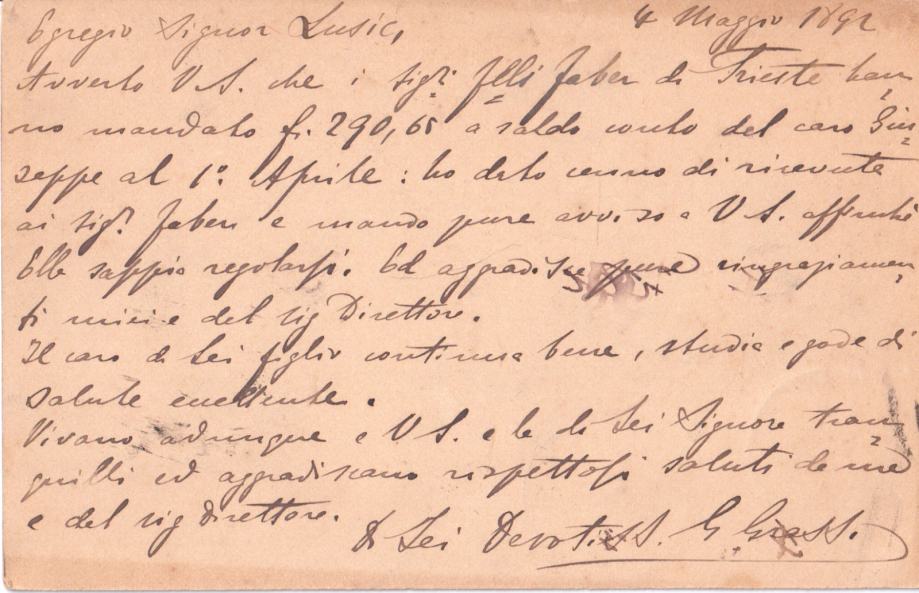 4 Maggio 1892
Egregio Signor Lusic,
Avverto V S. che i sigri flli Faber di Trieste han
no mandato fi. 290,65 a saldo conto del caro Giu
seppe al 1o. Aprile: ho dato cenno di ricevute
ai sigri Faber e mando pure avviso a V S. affinché
Elle sappia regolarsi. Ed aggradisce pure ringraziamen
ti miei e del sig Direttore.
Il caro di Lei figlio continua bene, studia e gode di
salute eccellente.
Vivano adunque e V S. e le di Lei Signore tran
quilli ed aggradiscano rispettosi saluti da me
e del sig Direttore.
Di Lei Devotiss. G.